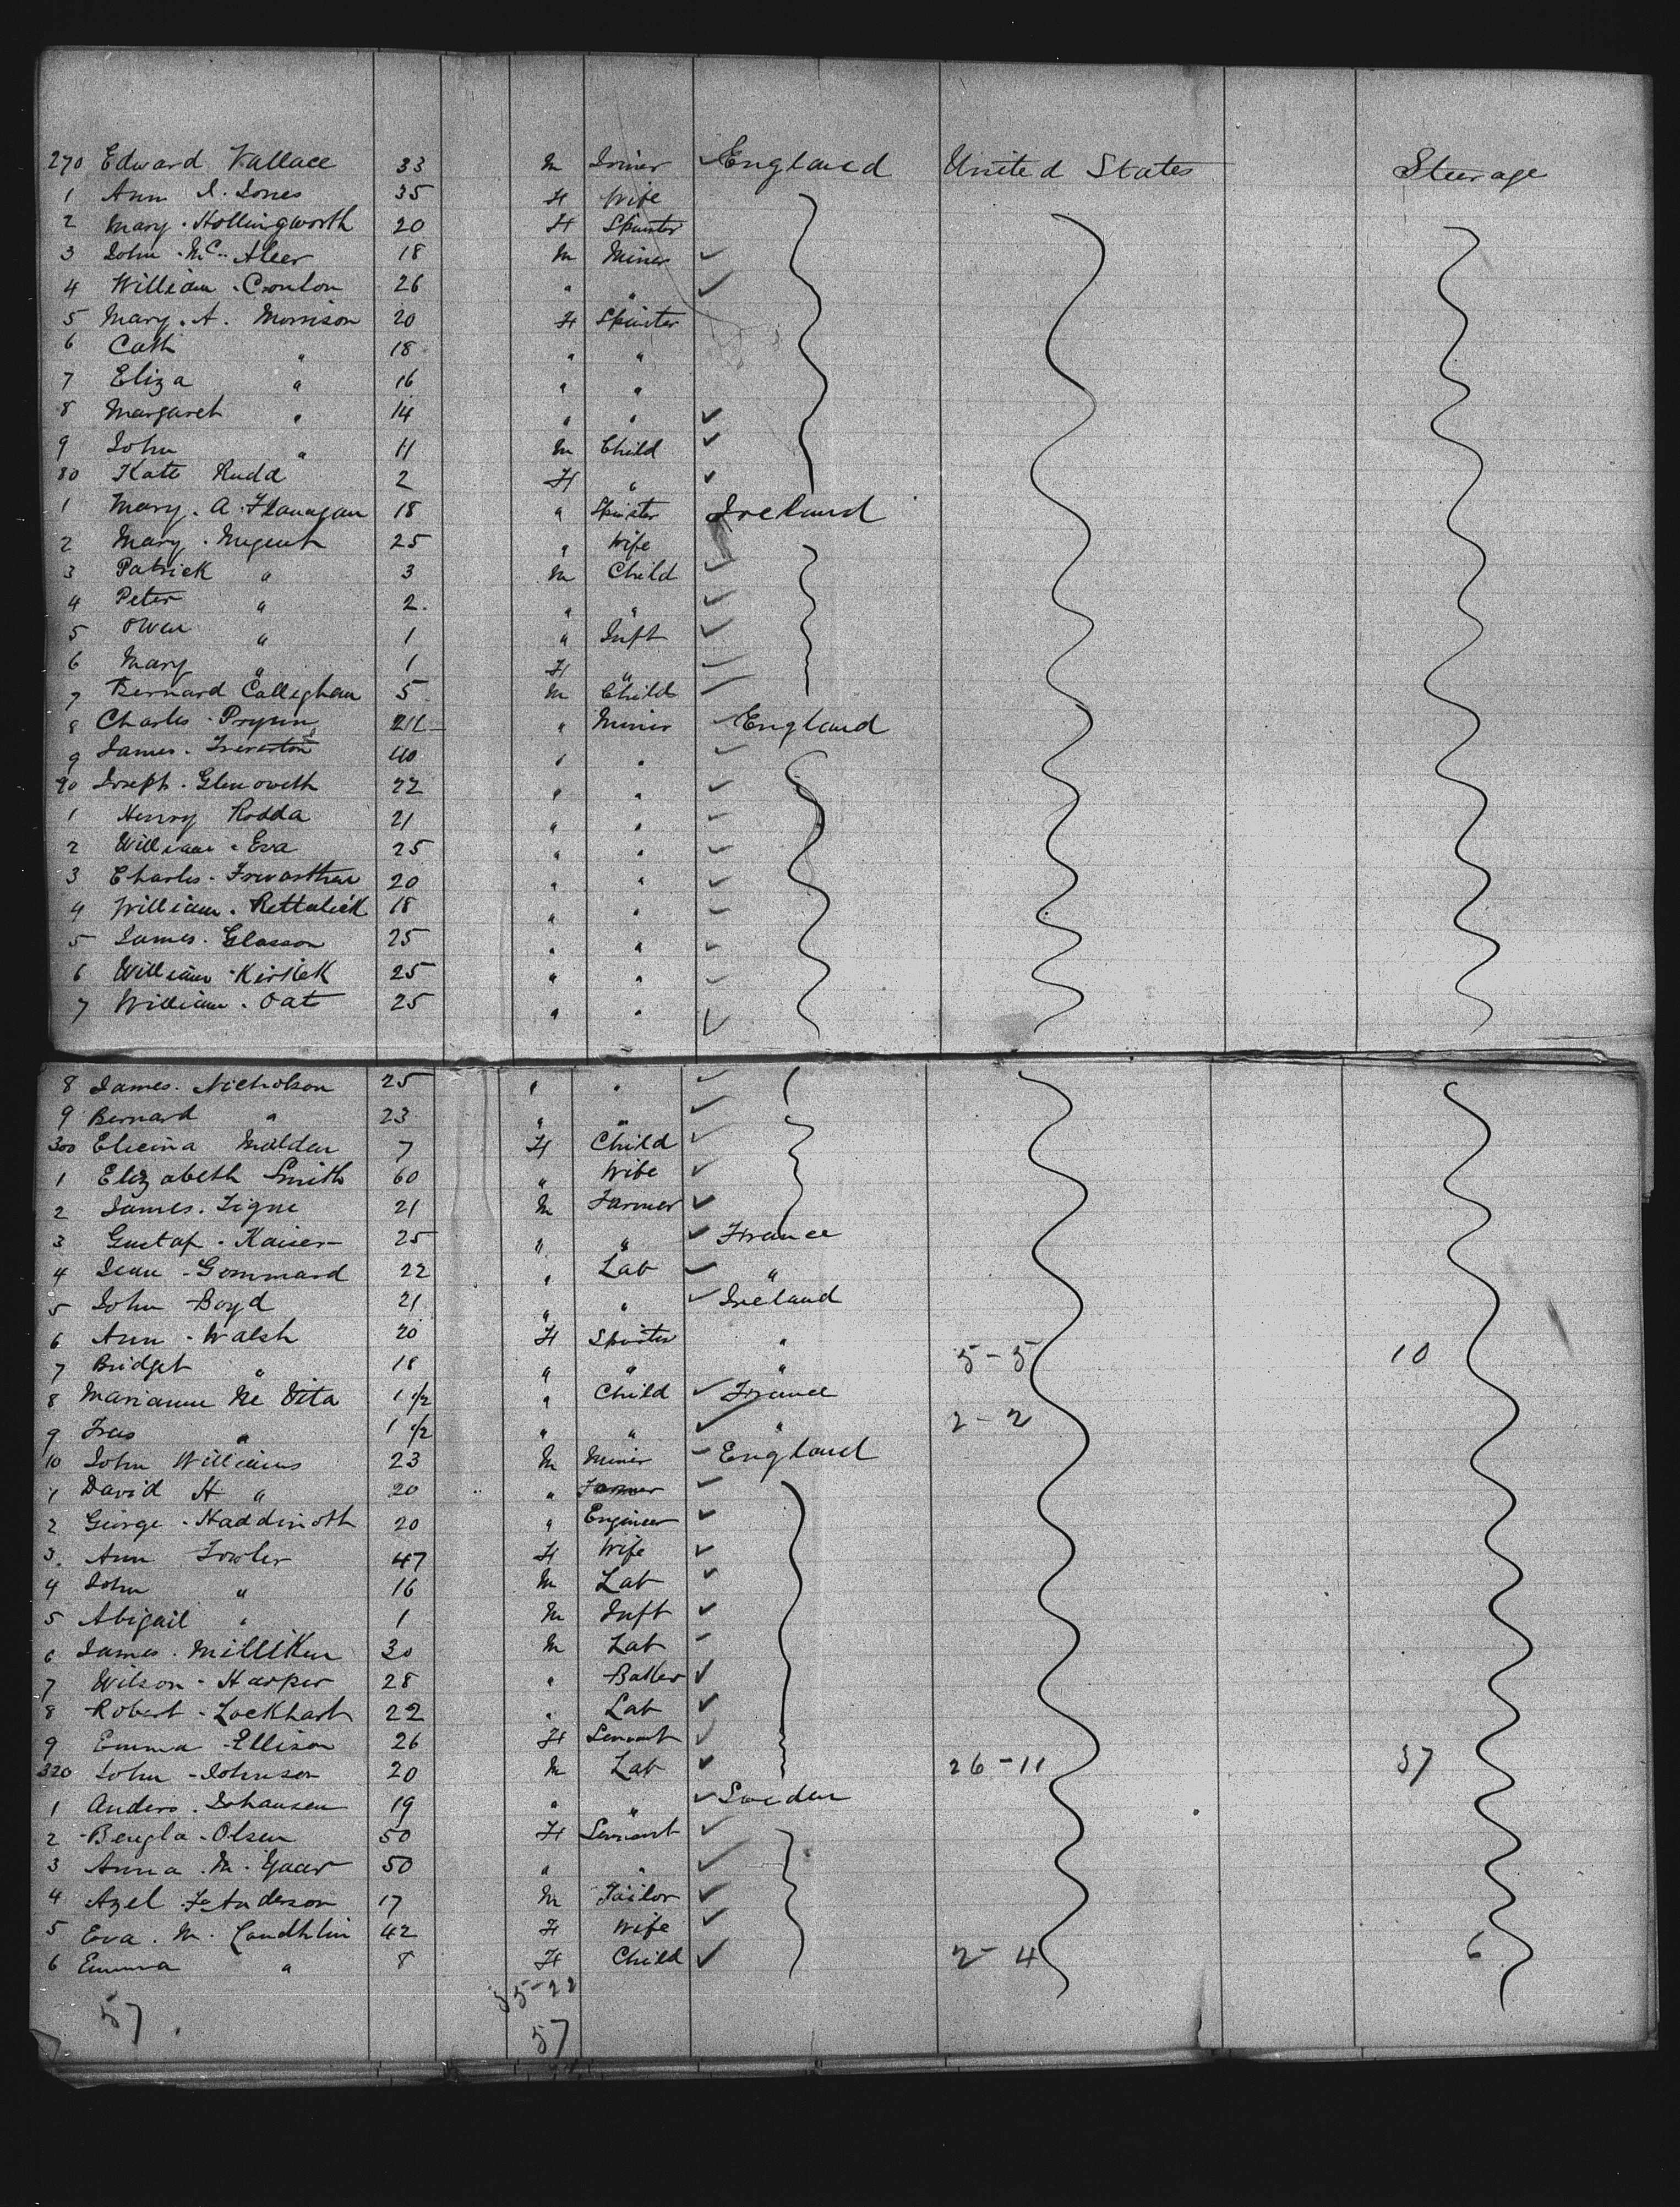 270 Edward Wallace 33 M Joiner England United States Steerage
1 Ann J. Jones 35 F Wife
2 Mary Hollingworth 20 F Spinster
3 John Mc Aleer 18 M Miner
4 William Cronlon 26 " "
5 Mary A. Morrison 20 F Spinster
6 Cath " 18 " "
7 Eliza " 16 " "
8 Margaret " 14 " "
9 John " 11 M Child
80 Kate Rudd 2 F "
1 Mary A Flanagan 18 " Spinster Ireland
2 Mary Nugent 25 " Wife
3 Patrick " 3 M Child
4 Peter " 2 " "
5 Owen " 1 " Inft
6 Mary " 1 F "
7 Bernard Calleghan 5 M Child
8 Charles Prynn 24 " Miner England
9 James 40 " "
90 Joseph Glenoweth 22 " "
1 Henry Rodda 21 " "
2 William Eva 25 " "
3 Charles 20 " "
4 William Rettalick 18 " "
5 James Glasson 25 " "
6 William 25 " "
7 William Oats 25 " "
8 James Nicholson 25 " "
9 Bernard " 23 " "
300 Malden 7 F Child
1 Elizabeth Smith 60 " Wife
2 James Tigne 21 M Farmer
3 Gustaf Kaiser 25 " " France
4 Jean Gommard 22 " Lab "
5 John Boyd 21 " " Ireland
6 Ann Walsh 20 F Spinster "
7 Bridget " 18 " " " 5-5 10
8 Marianne De Vita 1 1/2 " Child France
9 " 1 1/2 " " " 2-2
10 John Williams 23 M Miner England
1 David H " 20 " Farmer
2 George 20 " Engineer
3 Ann Fowler 47 F Wife
4 John " 16 M Lab
5 Abigail " 1 M Inft
6 James Milliken 30 M Lab
7 Wilson Harper 28 "
8 Robert Lockhart 22 " Lab
9 Emma Ellison 26 F Servant
320 John Johnson 20 M Lab 26-11 37
1 Anders Johansen 19 " " Sweden
2 Bengla Olsen 50 F Servant
3 Anna M. Gaar 50 " "
4 Axel F Anderson 17 M Tailor
5 Eva M. 42 F Wife
6 Emma " 8 F Child 2-4 6
35-22
57 57